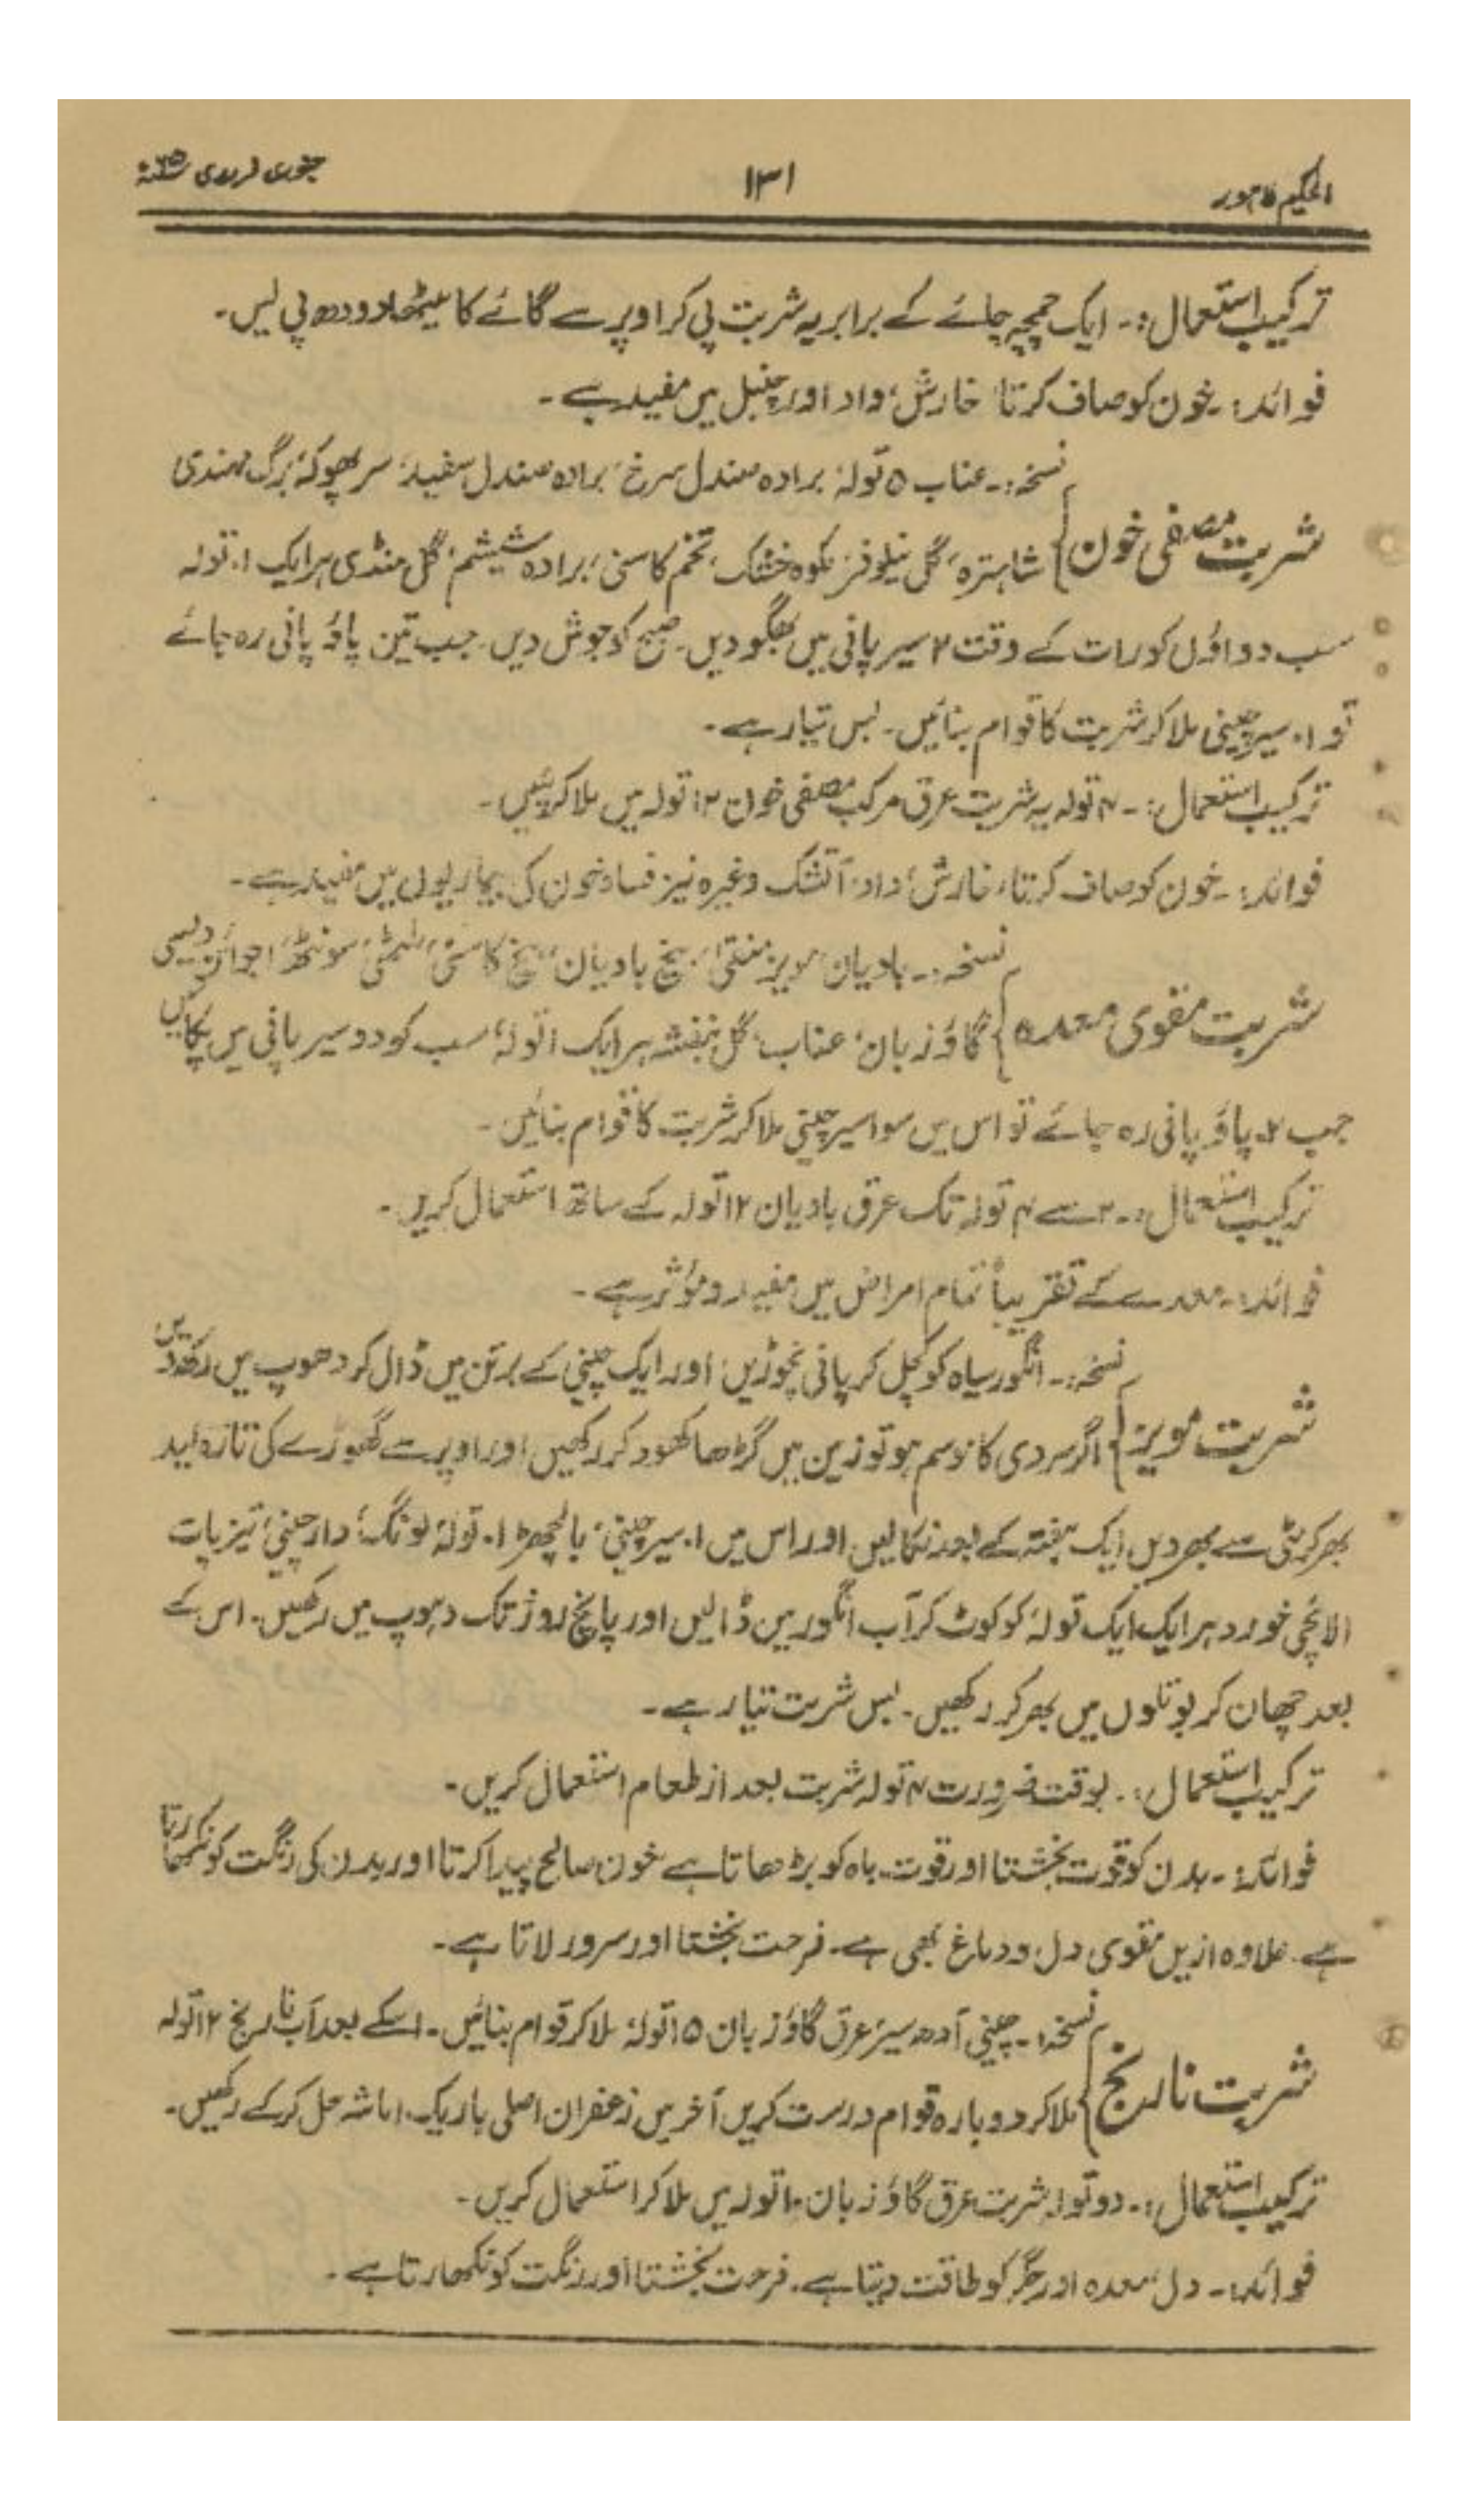 الحکیم لاہور
۱۳۱
جنوری فروری ۶۵ء
ترکیب استعمال:۔ ایک چمچہ چائے کے برابر یہ شربت پی کر اوپر سے گائے کا میٹھا دودھ پی لیں۔
فوائد:۔ خون کو صاف کرتا، خارش، داد اور چنبل میں مفید ہے۔
نسخہ:۔ عناب ۵ تولہ، برادہ صندل سرخ، برادہ صندل سفید، سرپھوکہ، برگ مہندی
شربت مصفی خون} شاہترہ، گل نیلوفر، مکوہ خشک، تخم کاسنی، برادہ شیشم، گل منڈی ہر ایک ۱۰ تولہ
سب دواؤں کو رات کے وقت ۲ سیر پانی میں بھگو دیں۔ صبح کو جوش دیں۔ جب تین پاؤ پانی رہ جائے
تو ۱۰ سیر چینی ملا کر شربت کا قوام بنائیں۔ بس تیار ہے۔
ترکیب استعمال:۔ ۴ تولہ یہ شربت عرق مرکب مصفی خون ۱۲ تولہ میں ملا کر پئیں۔
فوائد:۔ خون کو صاف کرتا، خارش، داد، آتشک وغیرہ نیز فساد خون کی بیماریوں میں مفید ہے۔
نسخہ:۔ بادیان، مویز منقیٰ، بیخ بادیان، بیخ کاسنی، ملٹھی، سونٹھ، اجوائن دیسی
شربت مقوی معدہ} گاؤزبان، عناب، گل بنفشہ ہر ایک ۱ تولہ، سب کو دو سیر پانی میں پکائیں
جب ۲ پاؤ پانی رہ جائے تو اس میں سوا سیر چینی ملا کر شربت کا قوام بنائیں۔
ترکیب استعمال:۔ ۲ سے ۴ تولہ تک عرق بادیان ۱۲ تولہ کے ساتھ استعمال کریں۔
فوائد:۔ معدے کے تقریباً تمام امراض میں مفید و مؤثر ہے۔
نسخہ:۔ انگور سیاہ کو کچل کر پانی نچوڑیں، اور ایک چینی کے برتن میں ڈال کر دھوپ میں رکھ دیں
شربت مویز} اگر سردی کا موسم ہو تو زمین میں گڑھا کھود کر رکھیں اور اوپر سے گھوڑے کی تازہ لید
بھر کر مٹی سے بھر دیں، ایک ہفتہ کے بعد نکالیں، اور اس میں ۱۰ سیر چینی، بالچھڑ ۱۰ تولہ، لونگ، دارچینی، تیزپات
الائچی خورد ہر ایک ایک تولہ، کو کوٹ کر آب انگور میں ڈالیں اور پانچ روز تک دہوپ میں رکھیں۔ اس کے
بعد چھان کر بوتلوں میں بھر کر رکھیں۔ بس شربت تیار ہے۔
ترکیب استعمال:۔ بوقت ضرورت ۴ تولہ شربت بعد از طعام استعمال کریں۔
فوائد:۔ بدن کو قوت بخشتا اور قوت باہ کو بڑھاتا ہے خون صالح پیدا کرتا اور بدن کی رنگت کو نکھارتا
ہے۔ علاوہ ازیں مقوی دل و دماغ بھی ہے۔ فرحت بخشتا اور سرور لاتا ہے۔
نسخہ:۔ چینی آدھ سیر، عرق گاؤزبان ۱۵ تولہ، ملا کر قوام بنائیں۔ اسکے بعد آب نارنج ۱۲ تولہ
شربت نارنج} ملا کر دوبارہ قوام درست کریں آخر میں زعفران اصلی باریک ۱ ماشہ حل کر کے رکھیں۔
ترکیب استعمال:۔ دو تولہ شربت عرق گاؤزبان ۱۰ تولہ میں ملا کر استعمال کریں۔
فوائد:۔ دل، معدہ اور جگر کو طاقت دیتا ہے۔ فرحت بخشتا اور رنگت کو نکھارتا ہے۔